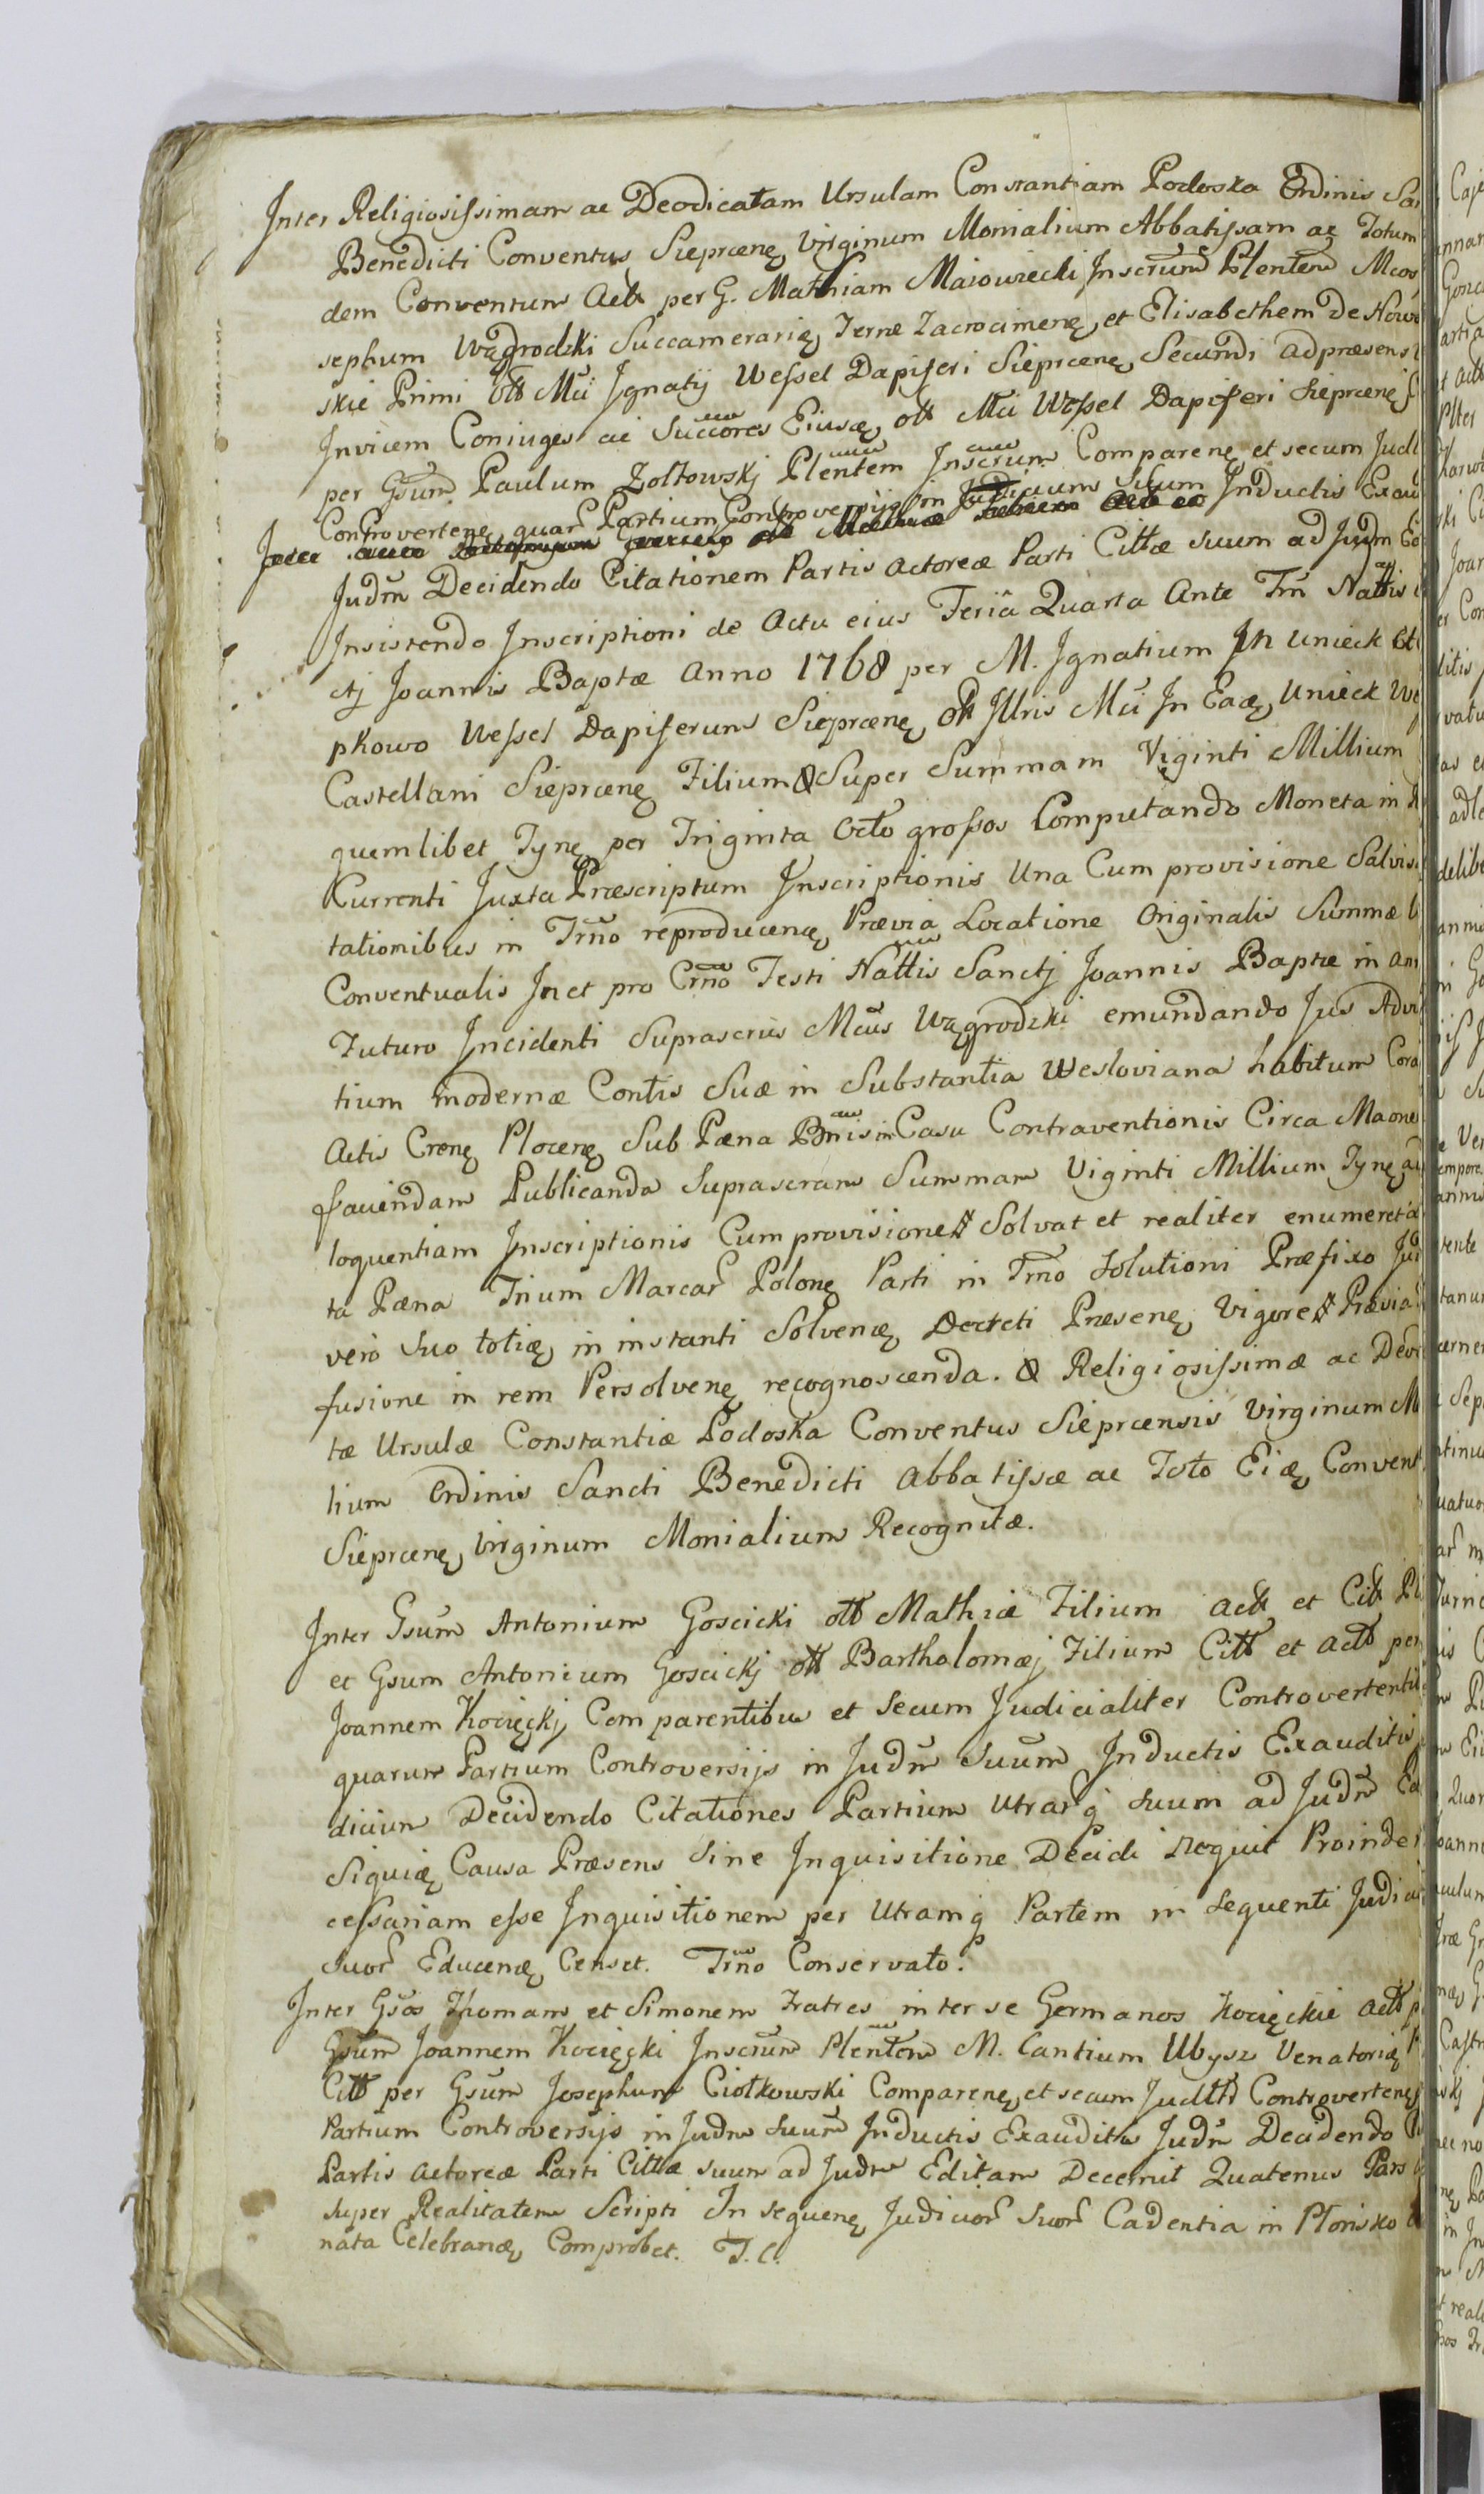 Inter Religiosissimam ac Deodicatam Ursulam Constantiam Podoska Ordinis San
Benedicti Conventus Sieprcenę Virginum Monialium Abbatissam ac Totum
dem Conventum Actt per G. Mathiam Maiowiecki Inscrum̃ Plentem Mcos
sephum Wągrodzki Succamerarię Terræ Zacrocimenę et Elisabethem De Nowo
skie Primi ott Mci Ignatij Wessel Dapiferi Sieprcenę Secundi ad præsens
Invicem Coniuges ac Succores Eiusdę ott Mci Wessel Dapiferi Sieprcenę
per Gsum Paulum Zoltowskj Plentem Inscrum Comparenę et secum Judl
Controvertenę quar Partium Controversijs in Judicium Suum Inductis Exau
Judm Decidendo Citationem Partis Actoreæ Parti Cittæ suum ad Judm Ed
Insistendo Inscriptioni de Actu eius Feria Quarta Ante Frn Nattis
ctj Joannis Baptæ Anno 1768 per M. Ignatium In Unieck et
pkowo Wessel Dapiferum Sieprcenę ott Illris Mci In Eadę Unieck We
Castellani Sieprcenę Filium Super Summam Viginti Millium
quemlibet Tynę per Triginta Octo grossos Computando Moneta in R
Currenti Juxta Præscriptum Inscriptionis Una Cum provisione Salvis
tationibus in Trño reproducendę Prævia Locatione Originalis Summæ
Conventualis In et pro Crño Festi Nattis Sanctj Joannis Baptæ in An
Futuro Incidenti Suprascrus Mcus Wągrodzki emundando Jus Advi
tium modernæ Contis Suæ in Substantia Wesloviana habitum Cora
Actis Crenę Plocenę Sub Pæna Bnnis in Casu Contraventionis Circa Maone
faciendam Publicanda Suprascram Summam Viginti Millium Tynę ad
loquentiam Inscriptionis Cum provisione Solvat et realiter enumeret
ta Pæna Trium Marcar Polonę Parti in Trño Solutioni Præfixo Jud
vero suo totię in instanti Solvendę Decreti Præsenę Vigore Prævia
fusione in rem Persolvenę recognoscenda. Religiosissimæ ac Deo
tæ Ursulæ Constantiæ Podoska Conventus Sieprcensis Virginum M
lium Ordinis Sancti Benedicti Abbatissæ ac Toto Eidę Convent
Sieprcenę Virginum Monialium Recognitæ.
Inter Gsum Antonium Goscicki ott Mathiæ Filium Actt et Citt Pl
et Gsum Antonium Goscickj ott Bartholomæj Filium Citt et Actt per
Joannem Kocięckj Comparentibus et Secum Judicialiter Controvertentib
quarum Partium Controversijs in Judm̃ Suum Inductis Exauditis
dicium Decidendo Citationes Partium Utrarq suum ad Judm̃ Ed
Siquidę Causa Præsens Sine Inquisitione Decidi nequit Proinde
cessariam esse Inquisitionem per Utramq Partem in Sequenti Judicio
suor Educendę Censet. Trño Conservato.
Inter Gsos Thomam et Simonem Fratres inter se Germanos Kocięckie Actt p
Gsum Joannem Kocięcki Inscrum Plentem M. Cantium Ubysz Venatorię
Citt per Gsum Josephum Ciolkowski Comparenę et secum Judltr Controvertenę
Partium Controversijs in Judm Suum Inductis Exauditis Judm Decidendo
Partis Actoreæ Parti Cittæ suum ad Judm Editam Decernit Quatenus Pars
Super Realitatem Scripti In Sequenę Judicior Suor Cadentia in Plonsko
nata Celebrandę Comprobet. T. C.